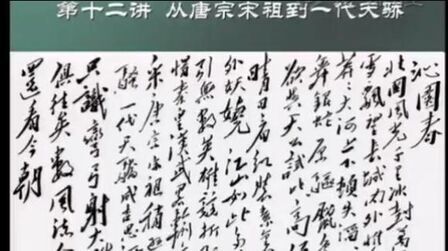 第十二讲 从唐宗宋祖到一代天骄
沁园春
北国风光千里冰封万
雪飘望长城内外惟
大河上下顿失滔
舞银蛇原驱
欲与天公试比高
晴日看红装素
外妖娆江山如此多
引无数英雄竞折
惜秦皇汉武略输
采唐宗宋祖稍逊
骚一代天骄成吉思
只识弯弓射大
俱往矣数风流
还看今朝